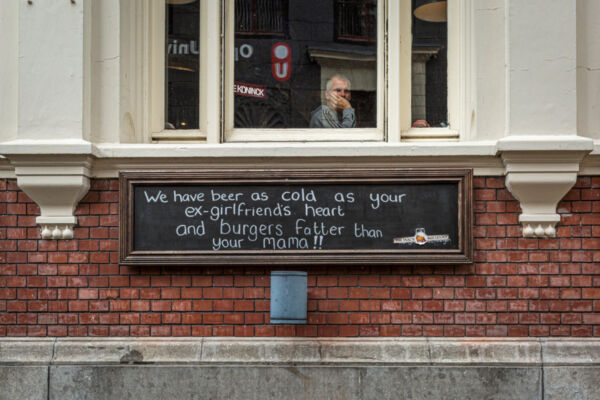 DE KONINCK
We have beer as cold as your
ex-girlfriend's heart
and burgers fatter than
your mama!!